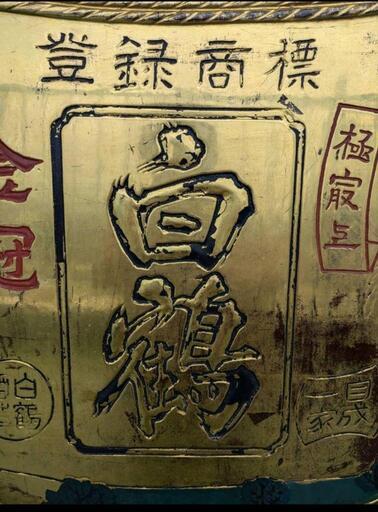 登録商標
白鶴
極冣上
金冠
白鶴